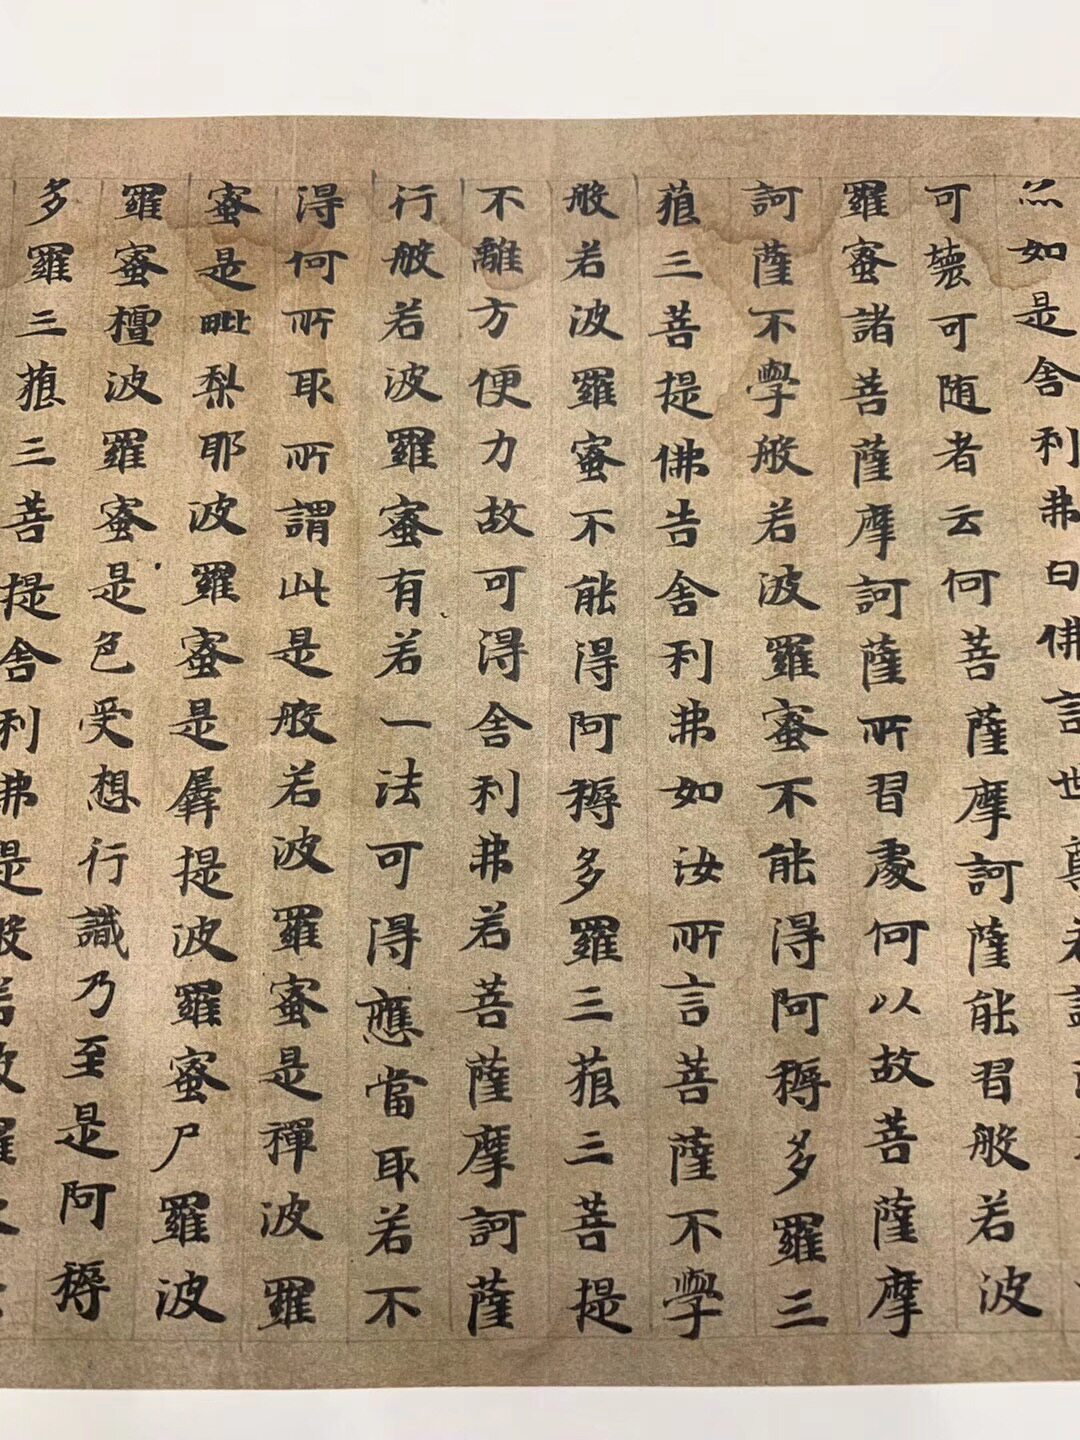 如是舍利弗曰佛言世尊若
可壞可随者云何菩薩摩訶薩能習般若波
羅蜜諸菩薩摩訶薩所習處何以故菩薩摩
訶薩不學般若波羅蜜不能得阿耨多羅三
藐三菩提佛告舍利弗如汝所言菩薩不學
般若波羅蜜不能得阿耨多羅三藐三菩提
不離方便力故可得舍利弗若菩薩摩訶薩
行般若波羅蜜有若一法可得應當取若不
得何所取所謂此是般若波羅蜜是禪波羅
蜜是毗梨耶波羅蜜是羼提波羅蜜尸羅波
羅蜜檀波羅蜜是色受想行識乃至是阿耨
多羅三藐三菩提舍利弗是般若波羅